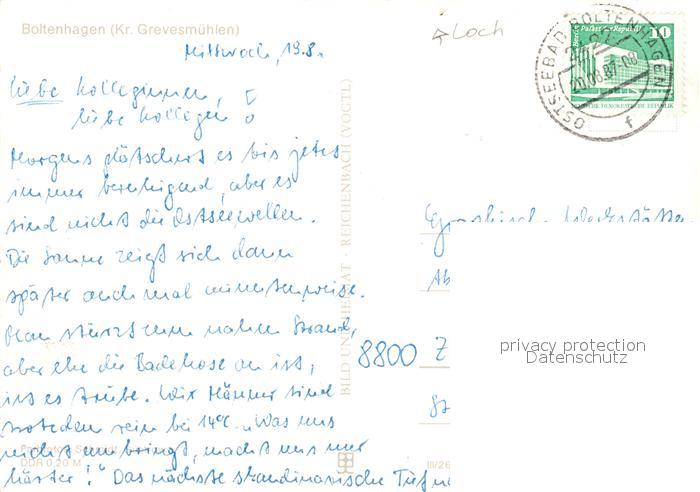 Boltenhagen (Kr. Grevesmühlen)
Loch
Mittwoch, 19.8.
Liebe Kolleginnen,
liebe Kollegen!
Morgens plätschert es bis jetzt
immer beruhigend, aber es
sind nicht die Ostseewellen.
Die Sonne zeigt sich dann
später auch mal minutenweise.
Man stürzt zum nahen Strand,
aber ehe die Badehose an ist,
ist es trübe. Wir Männer sind
trotzdem rein bei 14°C. "Was uns
nicht umbringt, macht uns nur
härter!" Das nächste skandinavische Tief
BILD UND HEIMAT · REICHENBACH (VOGTL)
DDR 0,20 M
III/26
OSTSEEBAD BOLTENHAGEN
20.08.87
f
Palast der Republik
10
DEUTSCHE DEMOKRATISCHE REPUBLIK
Ab
8800 Z
privacy protection
Datenschutz